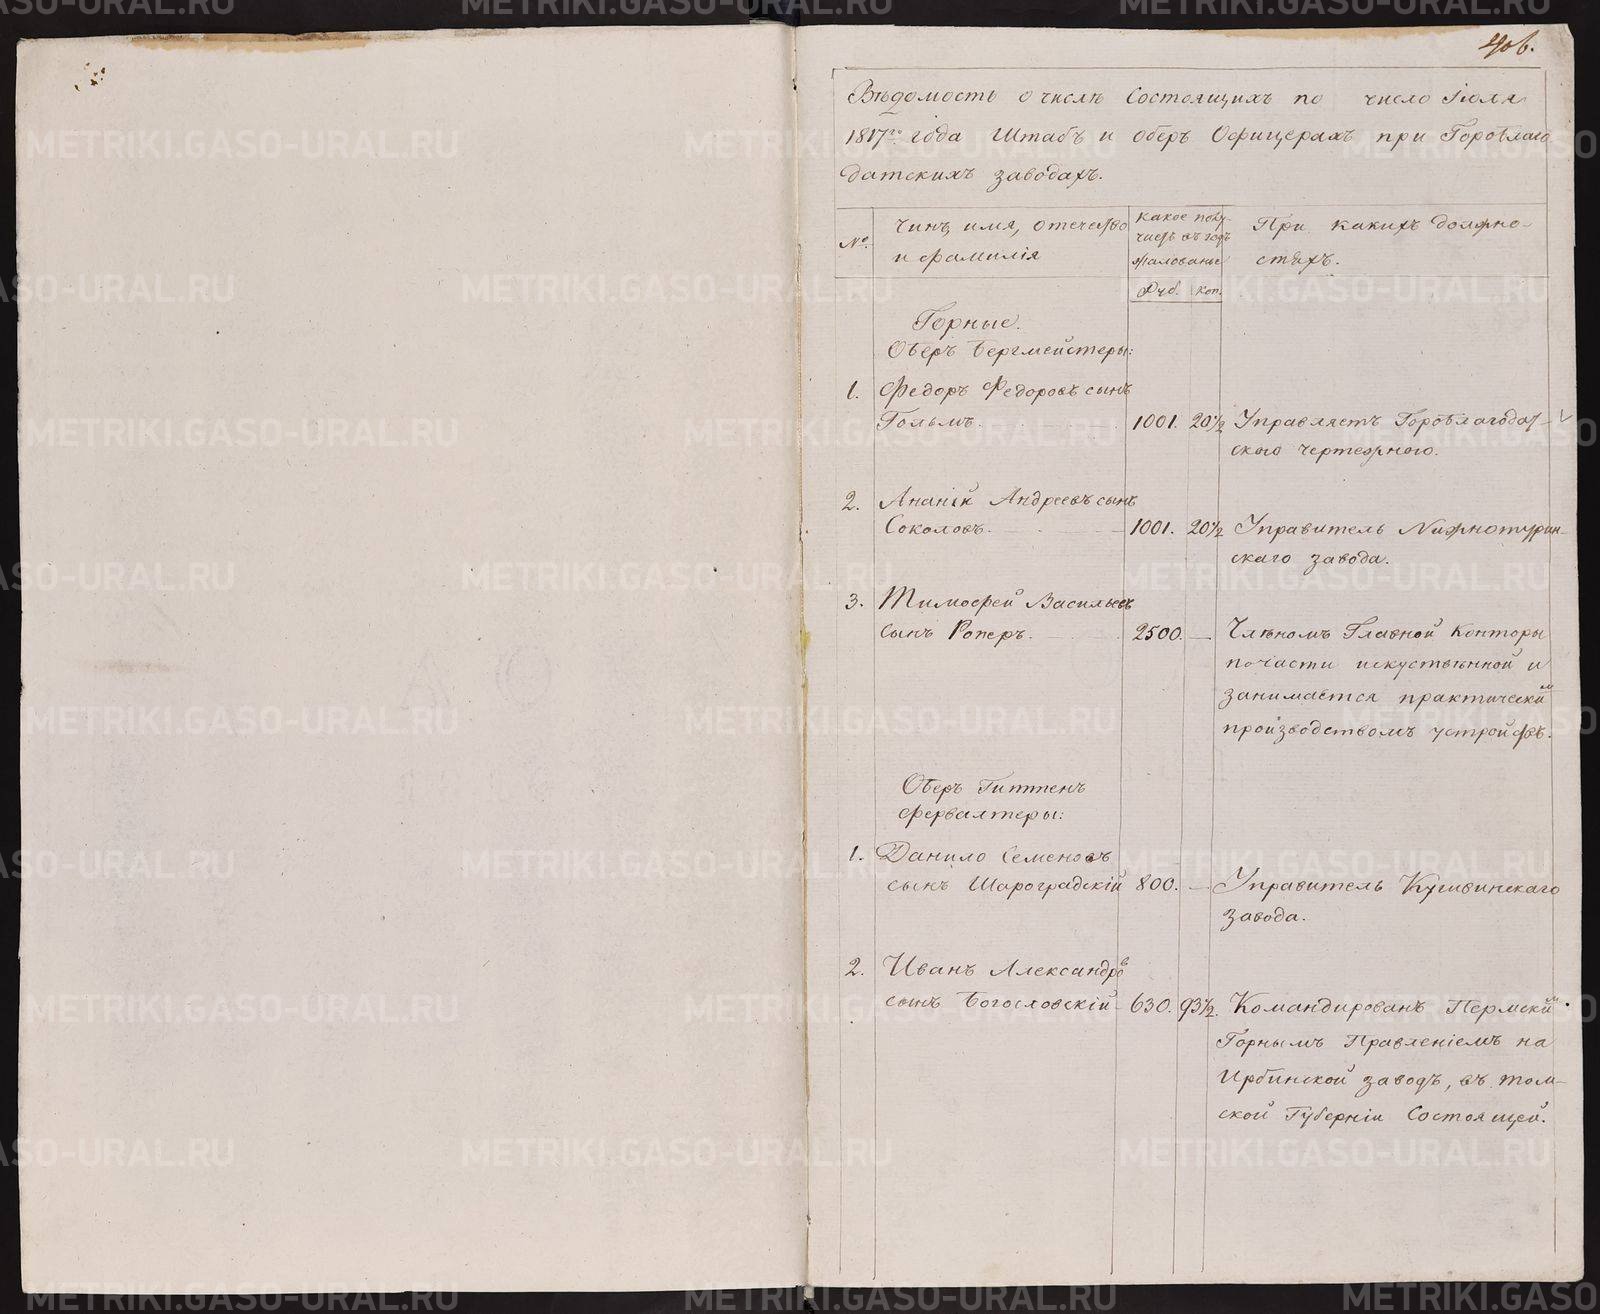 406.
Вѣдомость о числѣ состоящихъ по число Іюля
1817го года Штабъ и оберъ Офицерахъ при Гороблаго
датскихъ заводахъ.
№.
Чинъ, имя, отечество
и фамилія
Какое полу-
чаетъ въ годъ
жалованье
Руб. коп.
При какихъ должно-
стяхъ.
Горные.
Оберъ Бергмейстеры:
1. Федоръ Федоровъ сынъ
Гольмъ. 1001. 20½ Управляетъ Гороблагодат-
скаго чертежного.
2. Ананій Андреевъ сынъ
Соколовъ. 1001. 20½ Управитель Нижнотурин-
скаго завода.
3. Тимофей Васильевъ
сынъ Роперъ. 2500. — Члѣномъ Главной Конторы
почасти искуствѣнной и
занимается практическимъ
производствомъ устройствъ.
Оберъ Гиттенъ
фервалтеры:
1. Данило Семеновъ
сынъ Шароградскій 800. — Управитель Кушвинскаго
завода.
2. Иванъ Александров
сынъ Богословскій 630. 93½. Командированъ Пермским
Горнымъ Правленіемъ на
Ирбинской заводъ, въ Том-
ской Губерніи Состоящей.
METRIKI.GASO-URAL.RU